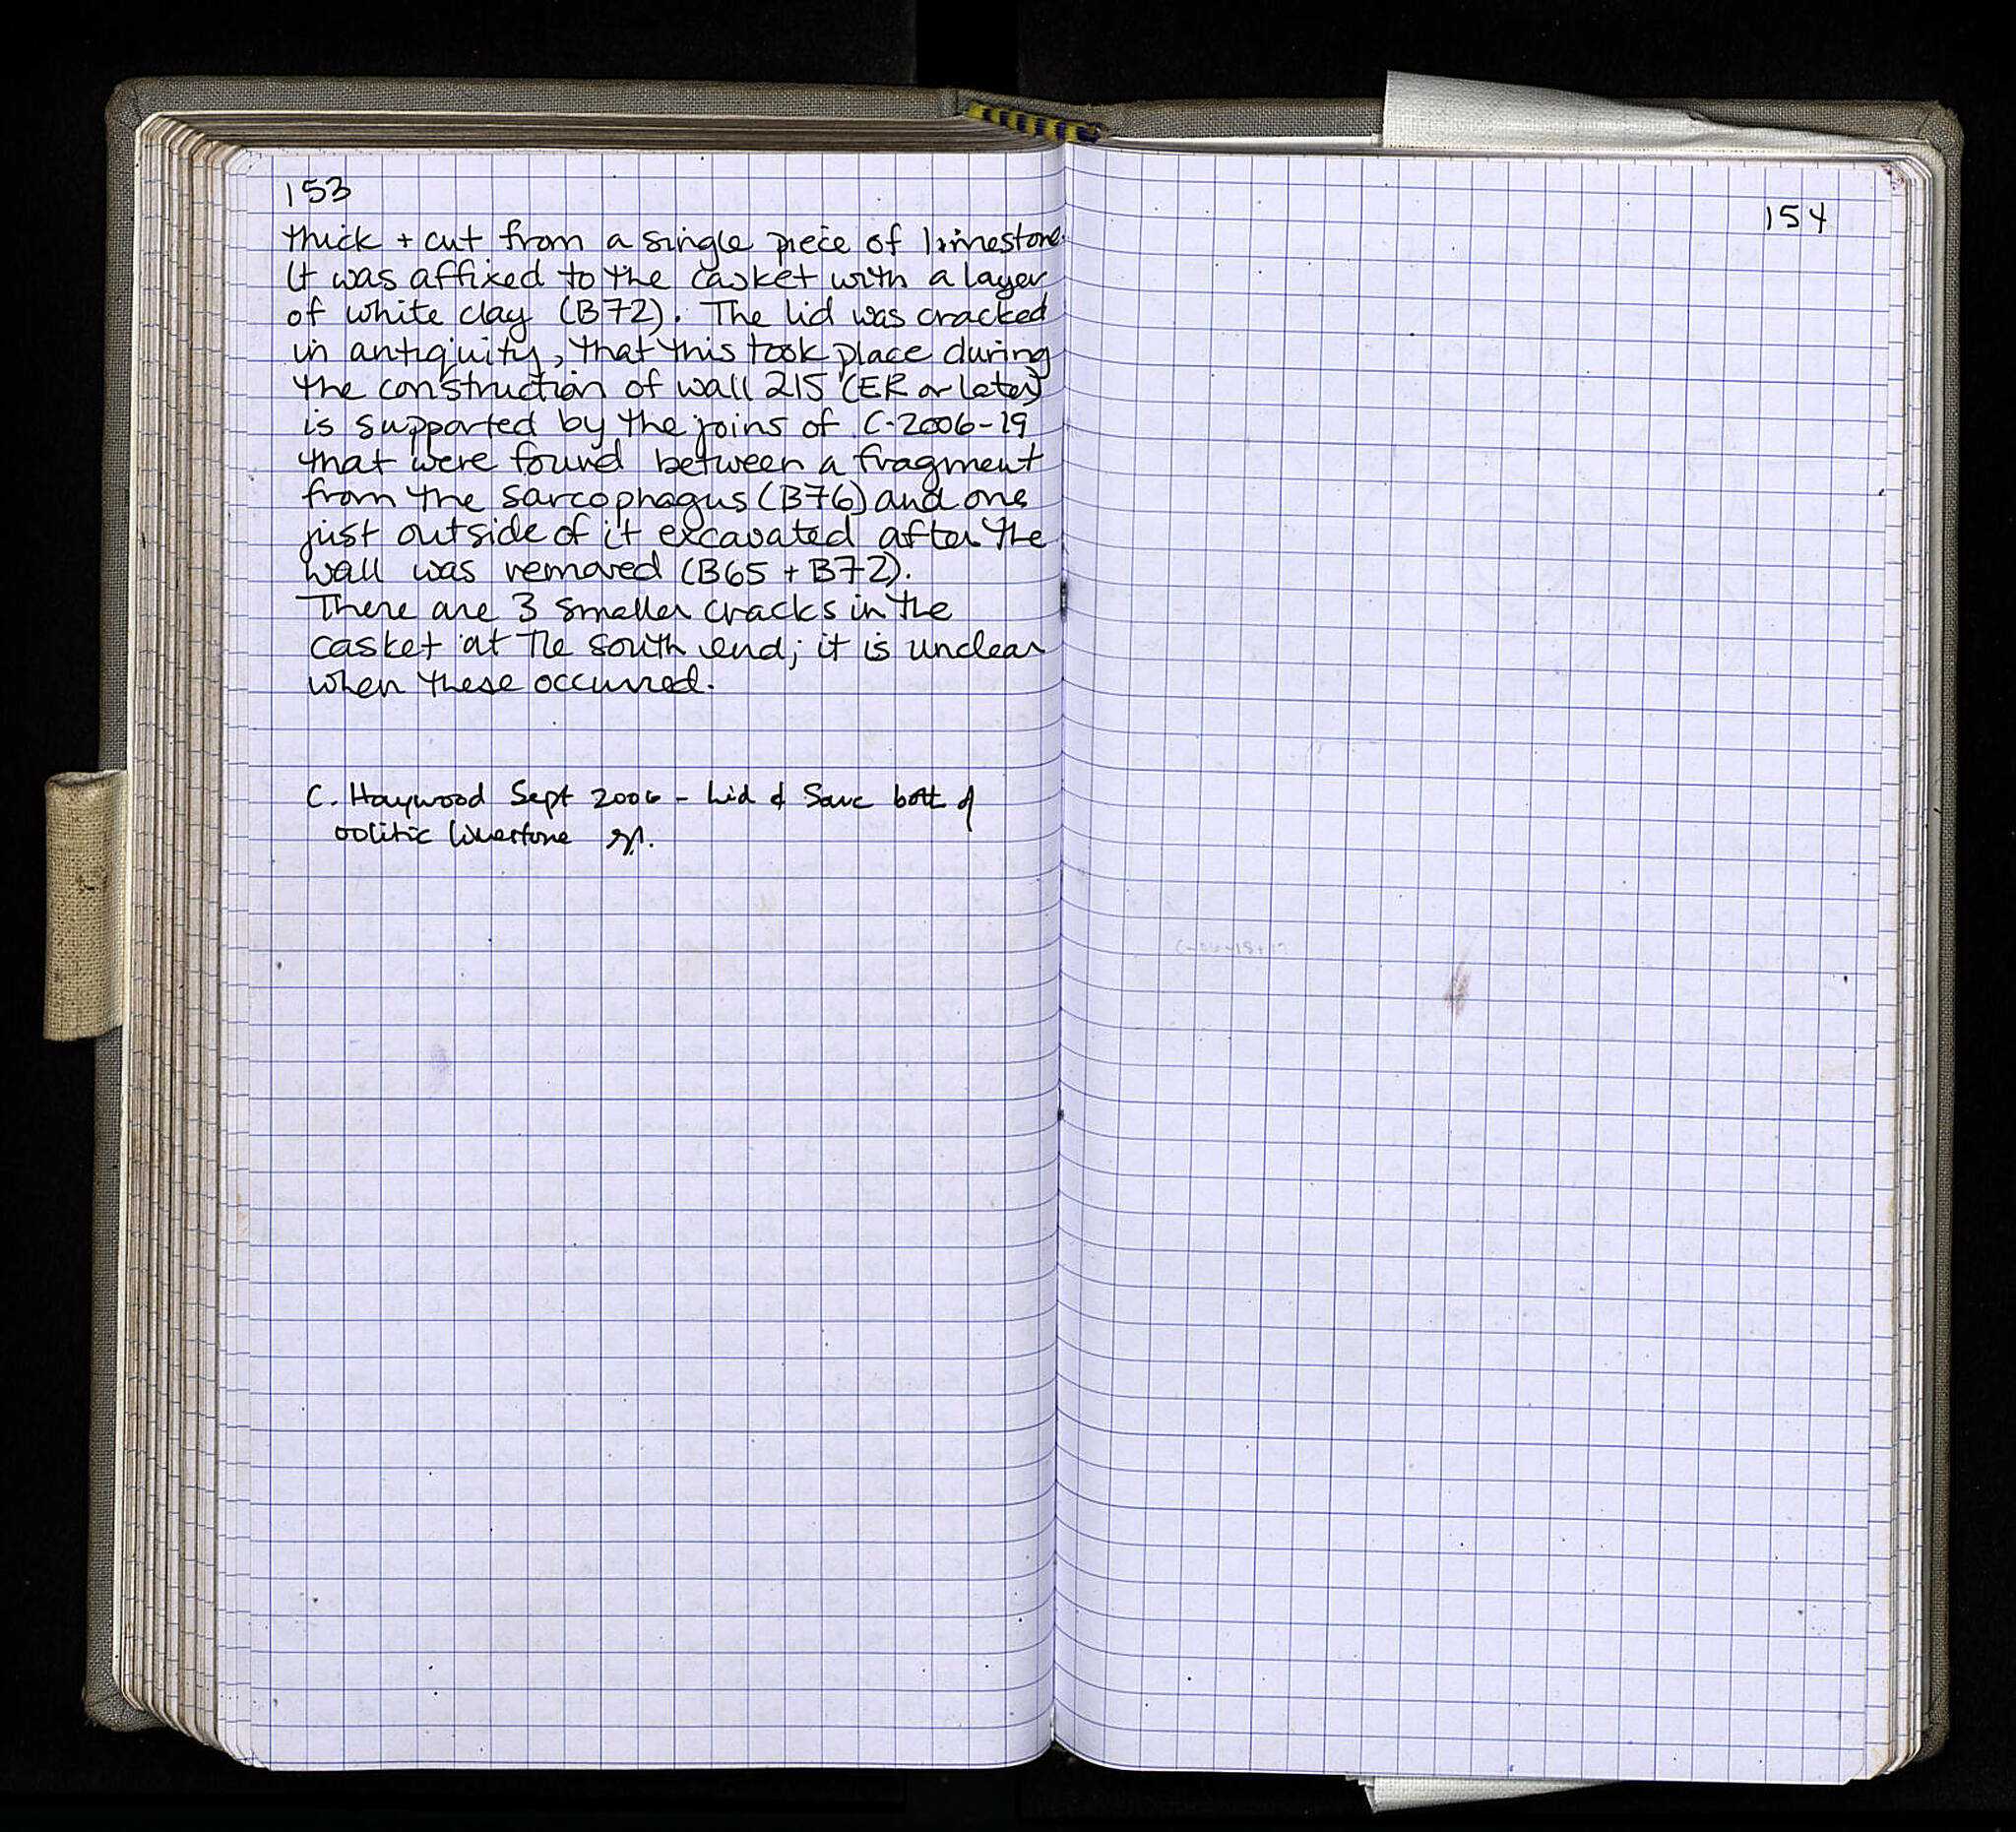 153
thick + cut from a single piece of limestone.
It was affixed to the casket with a layer
of white clay (B72). The lid was cracked
in antiquity, that this took place during
the construction of wall 215 (ER or later)
is supported by the joins of C-2006-19
that were found between a fragment
from the sarcophagus (B76) and one
just outside of it excavated after the
wall was removed (B65 + B72).
There are 3 smaller cracks in the
casket at the south end; it is unclear
when these occurred.
C. Haywood Sept 2006 - Lid & Sarc both of
oolitic limestone
154